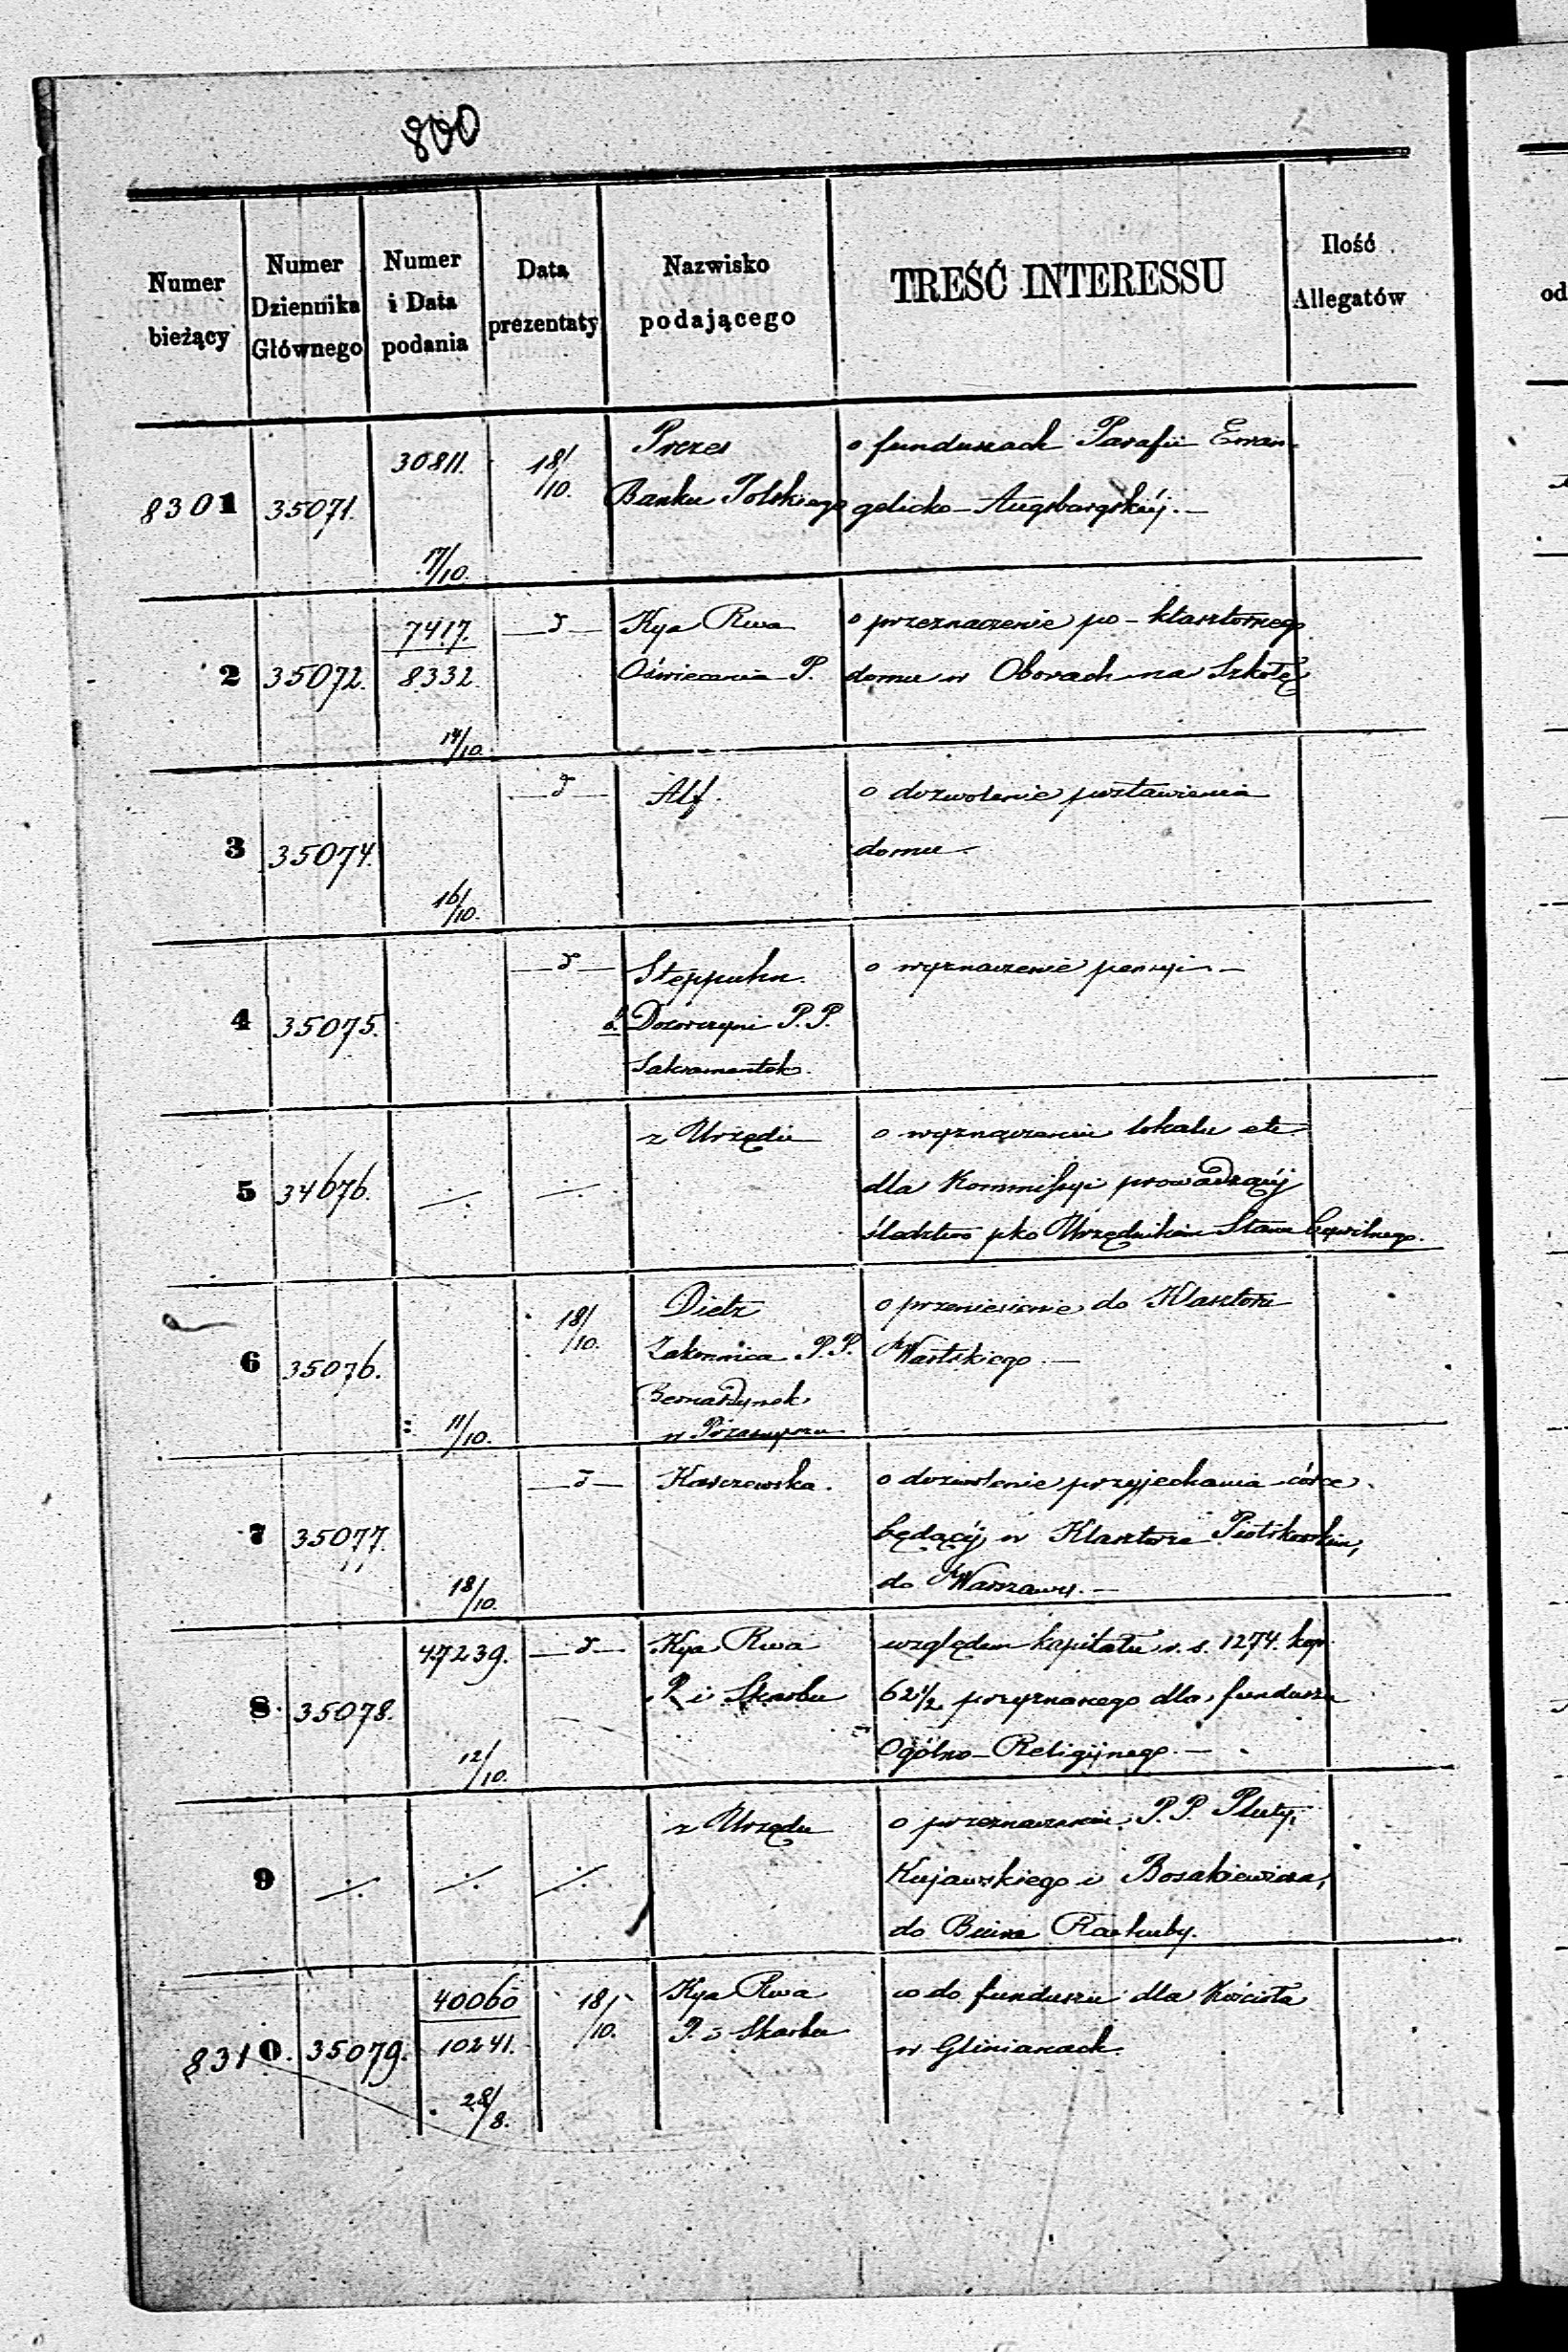 800
Numer bieżący
Numer Dziennika Głównego
Numer i Data podania
Data prezentaty
Nazwisko podającego
TREŚĆ INTERESSU
Ilość Allegatów
od
8301 35071. 30811. 17/10. 18/10. Prezes o funduszach Parafii Ewan-
Banku Polskiego gelicko-Augsburgskiéj.—
2 35072. 7417. 8332. 14/10. —d— Kya Rwa o przeznaczenie po-klasztornego
Oświecenia P. domu w Oborach na Szkołę
3 35074. 16/10. —d— Alf. o dozwolenie postawienia
domu.—
4 35075. —d— Steppuhn. o wyznaczenie pensyi.—
b. Dozorczyni P.P.
Sakramentek.
5 34676. ./. ./. z Urzędu o wyznaczeniu lokalu etc
dla Kommissyi prowadzącéj
śledztwo pko Urzędnikom Stanu Cywilnego.
6 35076. 11/10. 18/10. Dietz o przeniesienie do Klasztoru
Zakonnica P.P. Wartskiego.—
Bernardynek
w Przasnyszu
7 35077. 18/10. —d— Karczewska. o dozwolenie przyjechania córce
będącéj w Klasztorze Piotrkowskim,
do Warszawy.—
8. 35078. 47239. 12/10. —d— Kya Rwa względem kapitału r. s. 1274. kop.
P. i Skarbu 62 1/2 przyznanego dla funduszu
Ogólno-Religijnego.—
9 ./. ./. ./. z Urzędu o przeznaczeniu P.P. Pluty,
Kujawskiego i Bosakiewicza,
do Biura Rachuby.
8310. 35079. 40060 10241. 28/8. 18/10. Kya Rwa co do funduszu dla Kościoła
P. i Skarbu w Gliniankach.